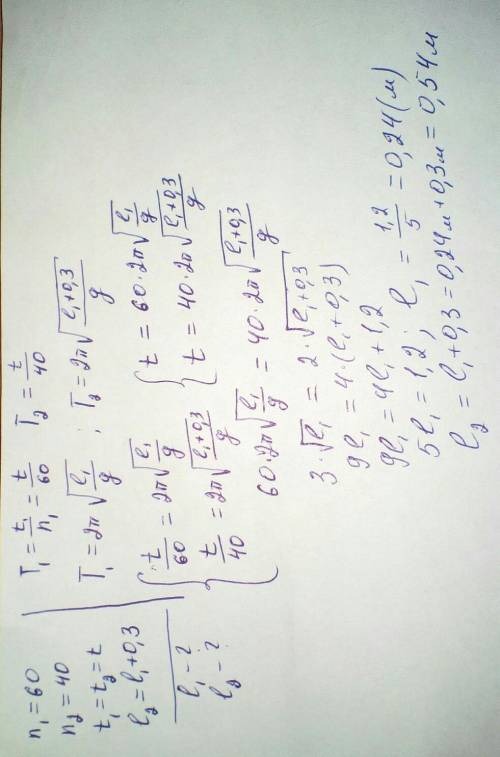 n₁ = 60
n₂ = 40
t₁ = t₂ = t
l₂ = l₁ + 0,3
l₁ - ?
l₂ - ?
T₁ = t₁/n₁ = t/60 T₂ = t/40
T₁ = 2π√(l₁/g) ; T₂ = 2π√((l₁+0,3)/g)
{ t/60 = 2π√(l₁/g) { t = 60·2π√(l₁/g)
t/40 = 2π√((l₁+0,3)/g) t = 40·2π√((l₁+0,3)/g)
60·2π√(l₁/g) = 40·2π√((l₁+0,3)/g)
3·√l₁ = 2·√(l₁+0,3)
9l₁ = 4·(l₁+0,3)
9l₁ = 4l₁ + 1,2
5l₁ = 1,2 ; l₁ = 1,2/5 = 0,24 (м)
l₂ = l₁ + 0,3 = 0,24м + 0,3м = 0,54м